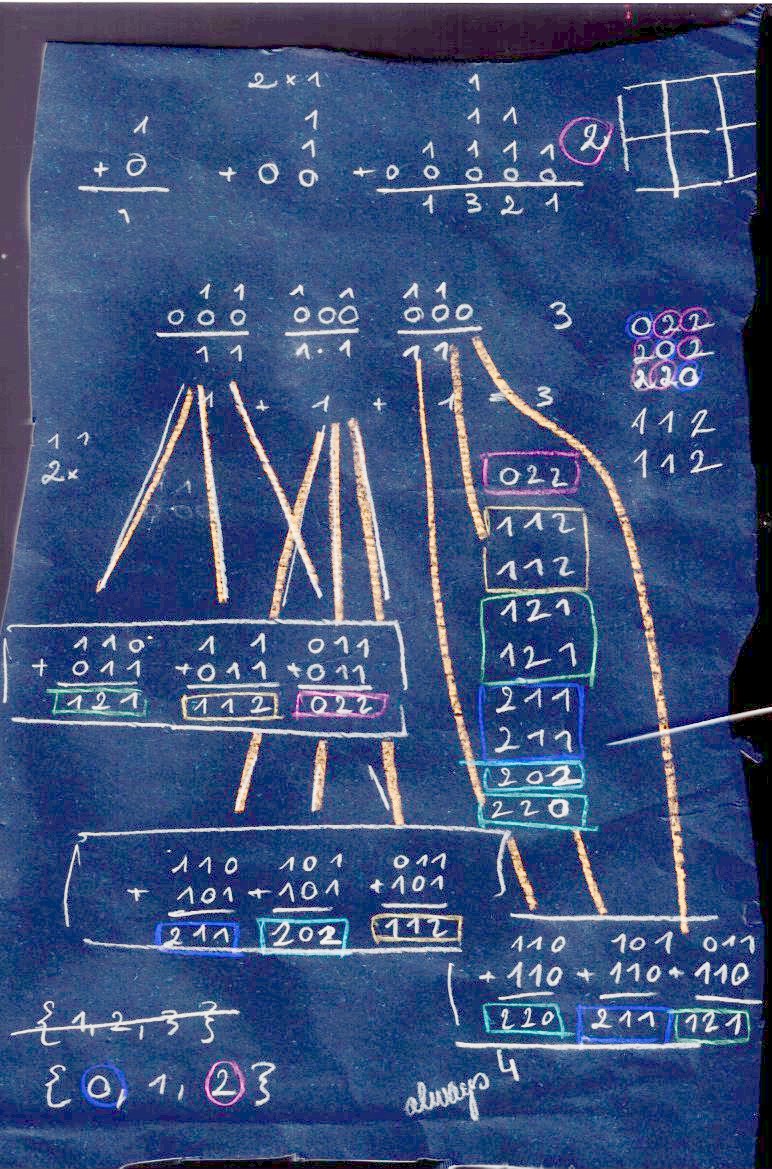 2 × 1
1
1 1 1 1
1 1 1 1 1 1 2
+ 0 + 0 0 + 0 0 0 0 0
1 1 3 2 1
1 1 1 1 1 1
0 0 0 0 0 0 0 0 0 3
1 1 1 . 1 1 1
1 + 1 + 1 = 3
0 2 2
2 0 2
2 2 0
1 1 2
1 1 2
1 1
2 ×
0 2 2
1 1 2
1 1 2
1 2 1
1 2 1
2 1 1
2 1 1
2 0 2
2 2 0
1 1 0 1 1 0 1 1
+ 0 1 1 + 0 1 1 + 0 1 1
1 2 1 1 1 2 0 2 2
1 1 0 1 0 1 0 1 1
+ 1 0 1 + 1 0 1 + 1 0 1
2 1 1 2 0 2 1 1 2
1 1 0 1 0 1 0 1 1
+ 1 1 0 + 1 1 0 + 1 1 0
2 2 0 2 1 1 1 2 1
{ 1, 2, 3 }
{ 0, 1, 2 }
always 4